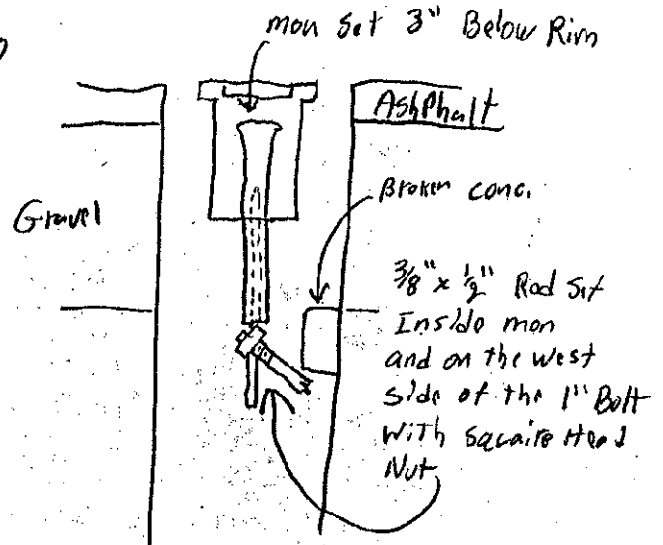 mon Set 3" Below Rim
AshPhalt
Gravel
Broken conc.
3/8" x 1/2" Rod Set
Inside mon
and on the west
side of the 1" Bolt
With Sqcaire Head
Nut